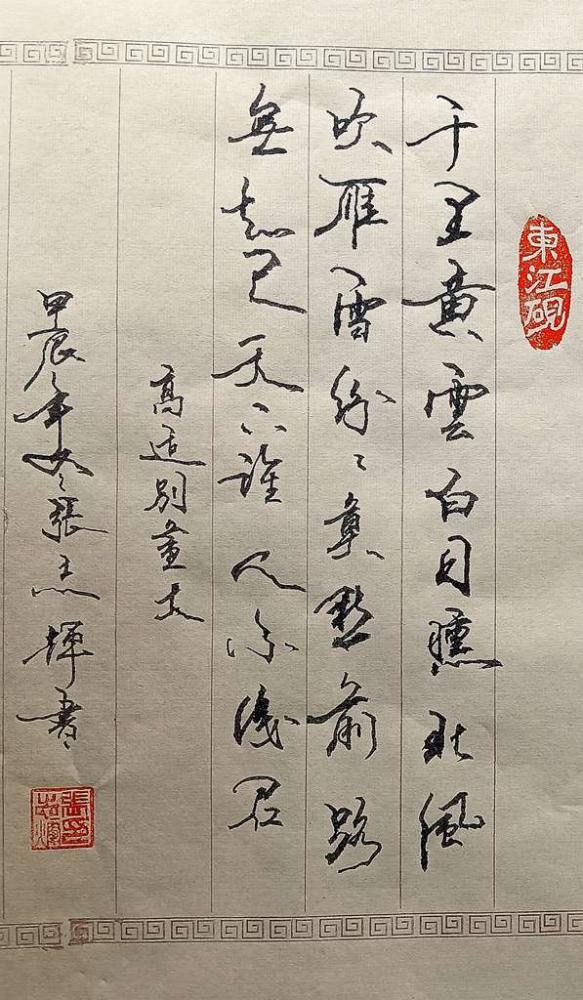 東江硯
千里黄雲白日曛北風
吹雁雪紛〻莫愁前路
無知己天下誰人不識君
高适別董大
甲辰年冬張志輝書